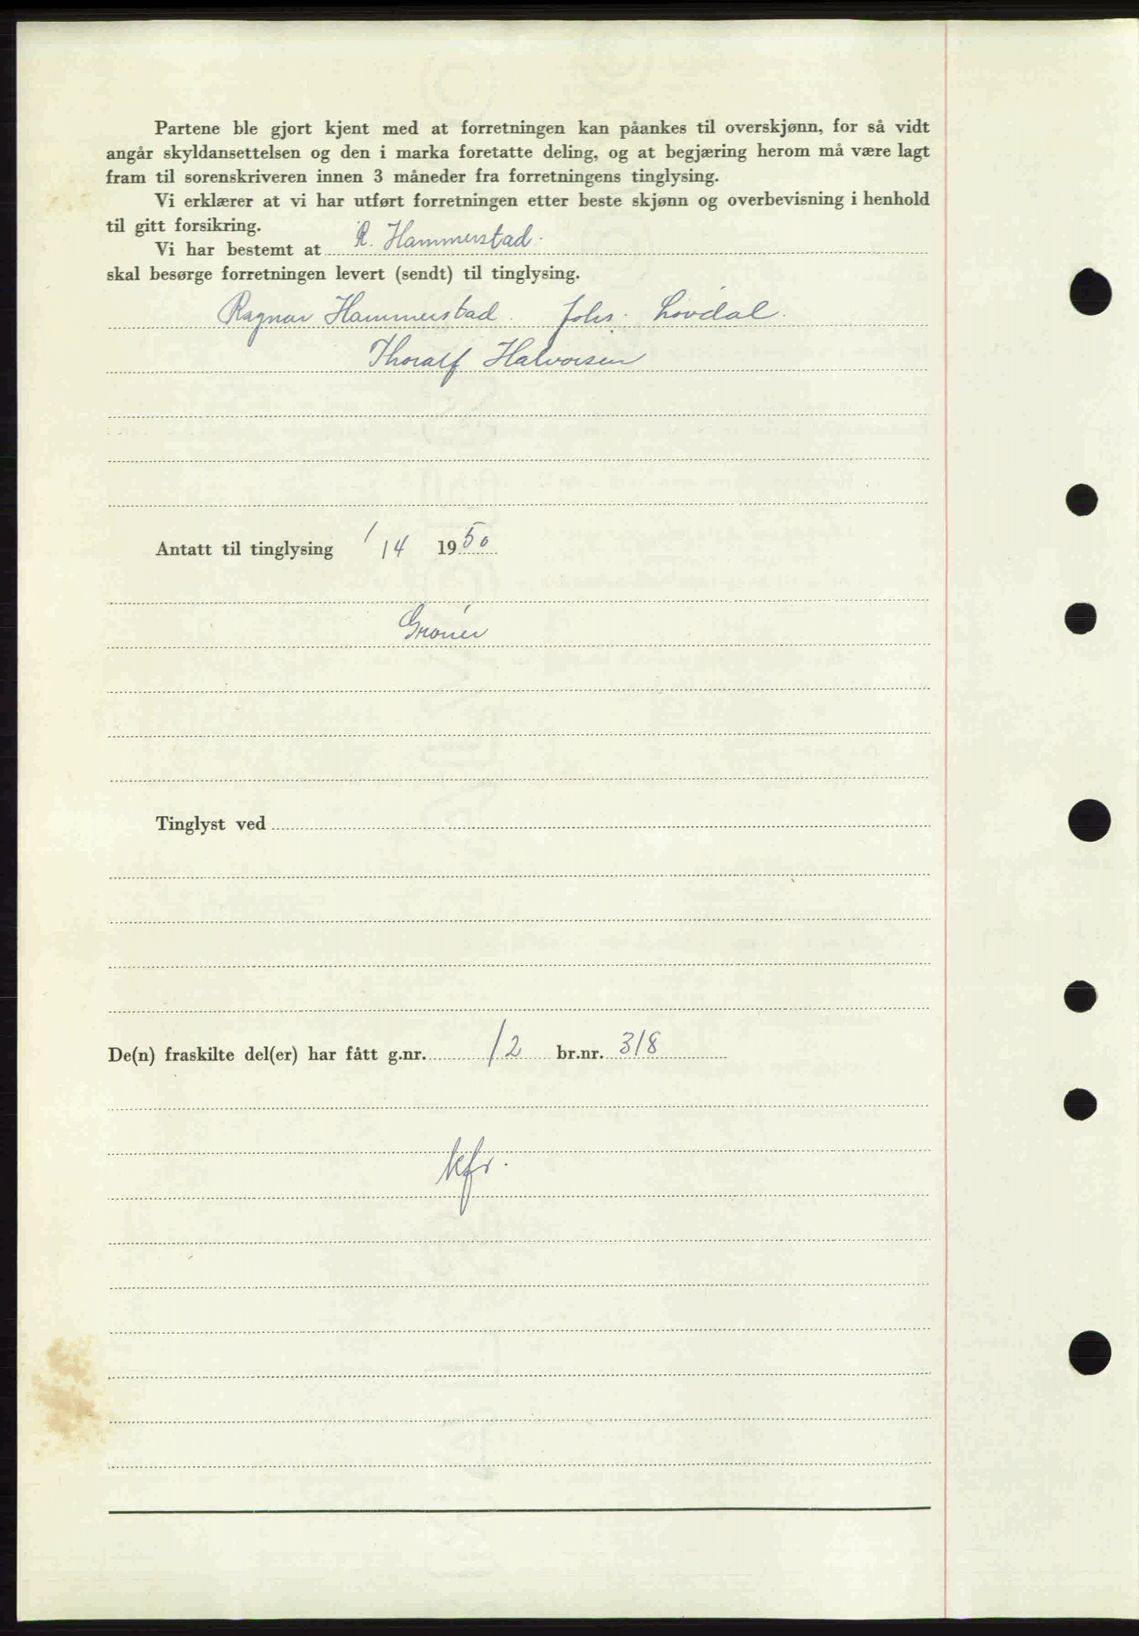 Partene ble gjort kjent med at forretningen kan påankes til overskjønn, for så vidt
angår skyldansettelsen og den i marka foretatte deling, og at begjæring herom må være lagt
fram til sorenskriveren innen 3 måneder fra forretningens tinglysing.
Vi erklærer at vi har utført forretningen etter beste skjønn og overbevisning i henhold
til gitt forsikring.
Vi har bestemt at R. Hammerstad.
skal besørge forretningen levert (sendt) til tinglysing.
Ragnar Hammerstad. Johs. Lövdal.
Thoralf Halvorsen
Antatt til tinglysing 1/4 1950
De(n) fraskilte del(er) har fått g.nr. 12 br.nr. 318
Tinglyst ved
kfr.